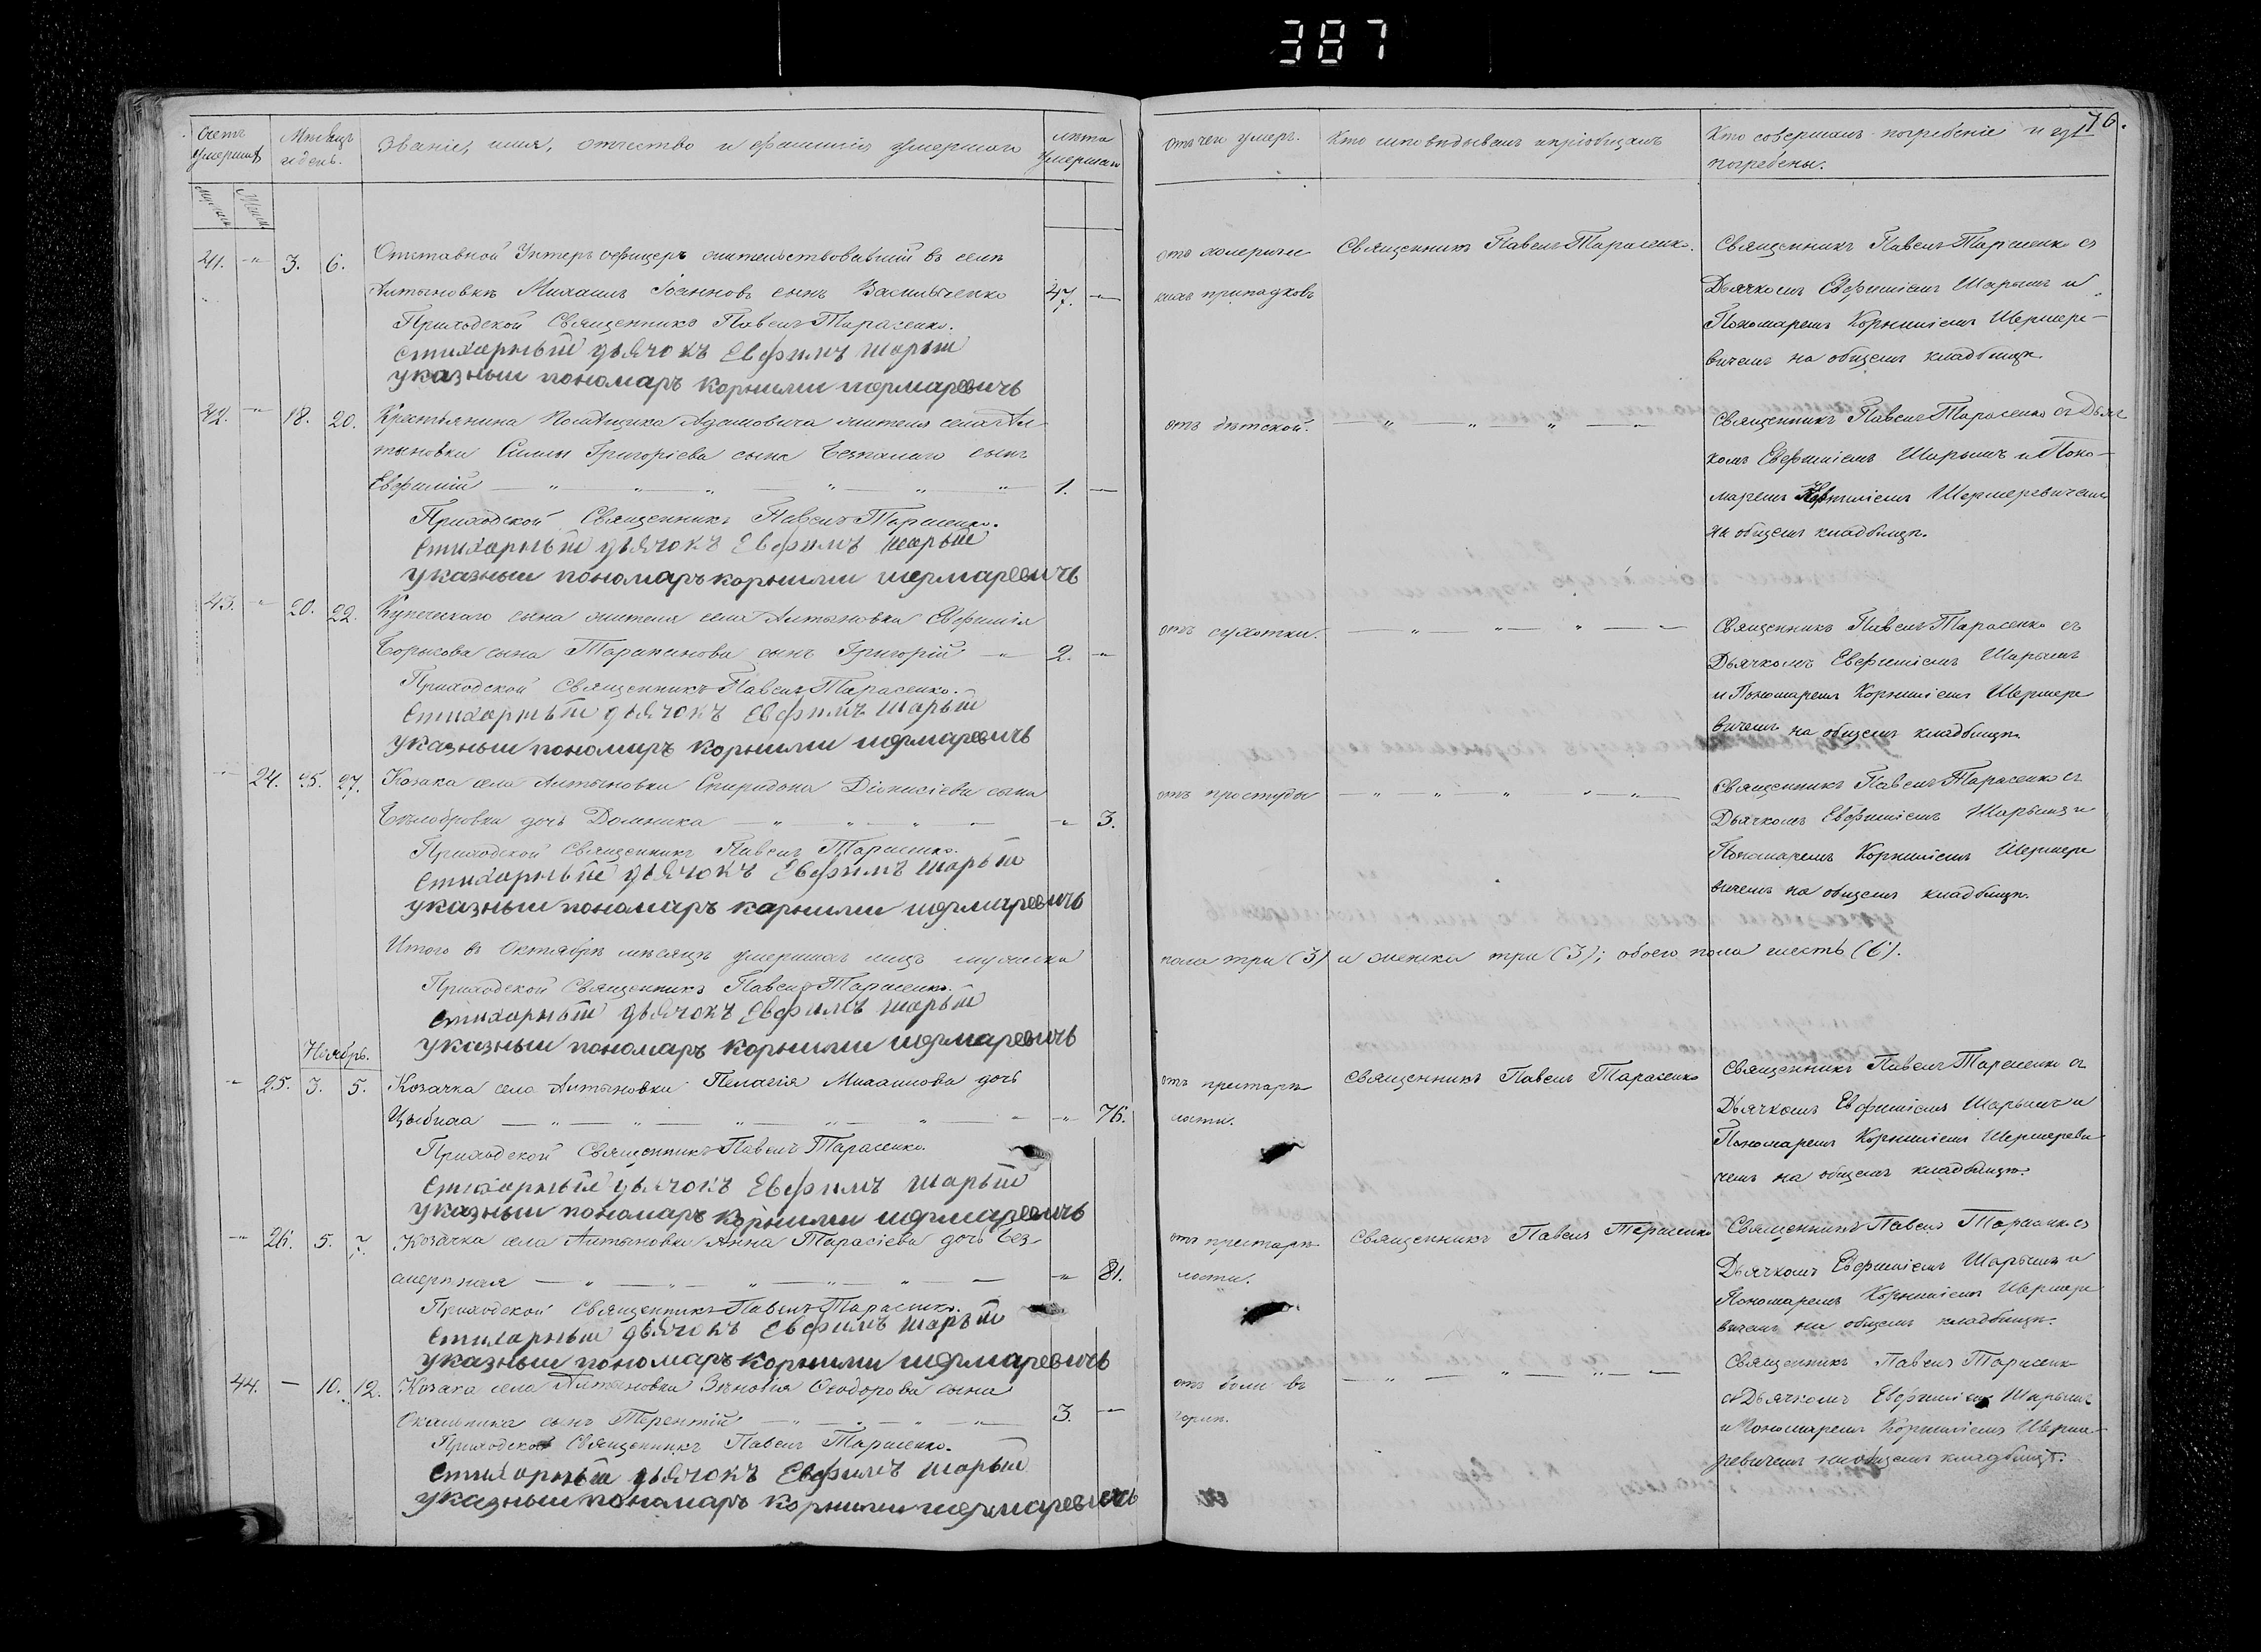 387
Счетъ умершихъ
Мѣсяцъ и день.
Званіе, имя, отчество и фамилія умершаго
лѣта умершаго
отъ чего умеръ.
Кто исповѣдывалъ и пріобщалъ
Кто совершалъ погребеніе и гдѣ погребены.
Мужска
Женска
41. 3. 6. Отставной Унтеръ офицеръ жительствовавшій въ селѣ
Алтыновкѣ Михаилъ Іоанновъ сынъ Васильченко 47.
Приходской Священникъ Павелъ Тарасенко.
стихарный дьячокъ Евфимъ шарый
указный пономаръ корнилий шермаревичъ
отъ холериче
кихъ припадковъ
Священникъ Павелъ Тарасенко.
Священникъ Павелъ Тарасенко съ
Дьячкомъ Евфиміемъ Шарымъ и
Пономаремъ Корниліемъ Шермере-
вичемъ на общемъ кладбищѣ
42. 18. 20. Крестьянина Помѣщика Адамовича жителя села Ал-
тыновки Силы Григоріева сына Безпалаго сынъ
Евфимій 1.
Приходской Священникъ Павелъ Тарасенко.
стихарный дьячокъ Евфимъ шарый
указный пономаръ корнилий шермаревичъ
отъ дѣтской.
Священникъ Павелъ Тарасенко съ Дьяч
комъ Евфиміемъ Шарымъ и Поно-
маремъ Корниліемъ Шермеревичемъ
на общемъ кладбищѣ.
43. 20. 22. Купеческаго сына жителя села Алтыновки Евфимія
Борисова сына Тараканова сынъ Григорій 2.
Приходской Священникъ Павелъ Тарасенко.
стихарный дьячокъ Евфимъ шарый
указный пономаръ корнилий шермаревичъ
отъ сухотки.
Священникъ Павелъ Тарасенко съ
Дьячкомъ Евфиміемъ Шарымъ
и Пономаремъ Корниліемъ Шермере
вичемъ на общемъ кладбищѣ.
24. 25. 27. Козака села Алтыновки Спиридона Діонисіева сына
Бѣлобровки дочь Домника 3.
Приходской Священникъ Павелъ Тарасенко.
стихарный дьячокъ Евфимъ шарый
указный пономаръ корнилий шермаревичъ
отъ простуды
Священникъ Павелъ Тарасенко съ
Дьячкомъ Евфиміемъ Шарымъ и
Пономаремъ Корниліемъ Шермере
вичемъ на общемъ кладбищѣ.
Итого въ Октябрѣ мѣсяцѣ умершихъ лицъ мужска пола три (3) и женска три (3); обоего пола шесть (6).
Приходской Священникъ Павелъ Тарасенко.
стихарный дьячокъ Евфимъ шарый
указный пономаръ корнилий шермаревичъ
Ноябрь.
25. 3. 5. Козачка села Алтыновки Пелагія Михаилова дочь
Цыбная 76.
Приходской Священникъ Павелъ Тарасенко.
стихарный дьячокъ Евфимъ шарый
указный пономаръ корнилий шермаревичъ
отъ престарѣ
лости.
Священникъ Павелъ Тарасенко
Священникъ Павелъ Тарасенко съ
Дьячкомъ Евфиміемъ Шарымъ и
Пономаремъ Корниліемъ Шермереви
чемъ на общемъ кладбищѣ.
26. 5. 7. Козачка села Алтыновки Анна Тарасіева дочь Без-
смертная 81.
Приходской Священникъ Павелъ Тарасенко.
стихарный дьячокъ Евфимъ шарый
указный пономаръ корнилий шермаревичъ
отъ престарѣ
лости.
Священникъ Павелъ Тарасенко
Священникъ Павелъ Тарасенко съ
Дьячкомъ Евфиміемъ Шарымъ и
Пономаремъ Корниліемъ Шермере
вичемъ на общемъ кладбищѣ.
44. 10. 12. Козака села Алтыновки Зѣновія Ѳеодорова сына
сынъ Терентій 3.
Приходской Священникъ Павелъ Тарасенко.
стихарный дьячокъ Евфимъ шарый
указный пономаръ корнилий шермаревичъ
отъ боли въ
горлѣ.
Священникъ Павелъ Тарасенк
съ Дьячкомъ Евфиміемъ Шарымъ
и Пономаремъ Корниліемъ Шерме-
ревичемъ на общемъ кладбищѣ.